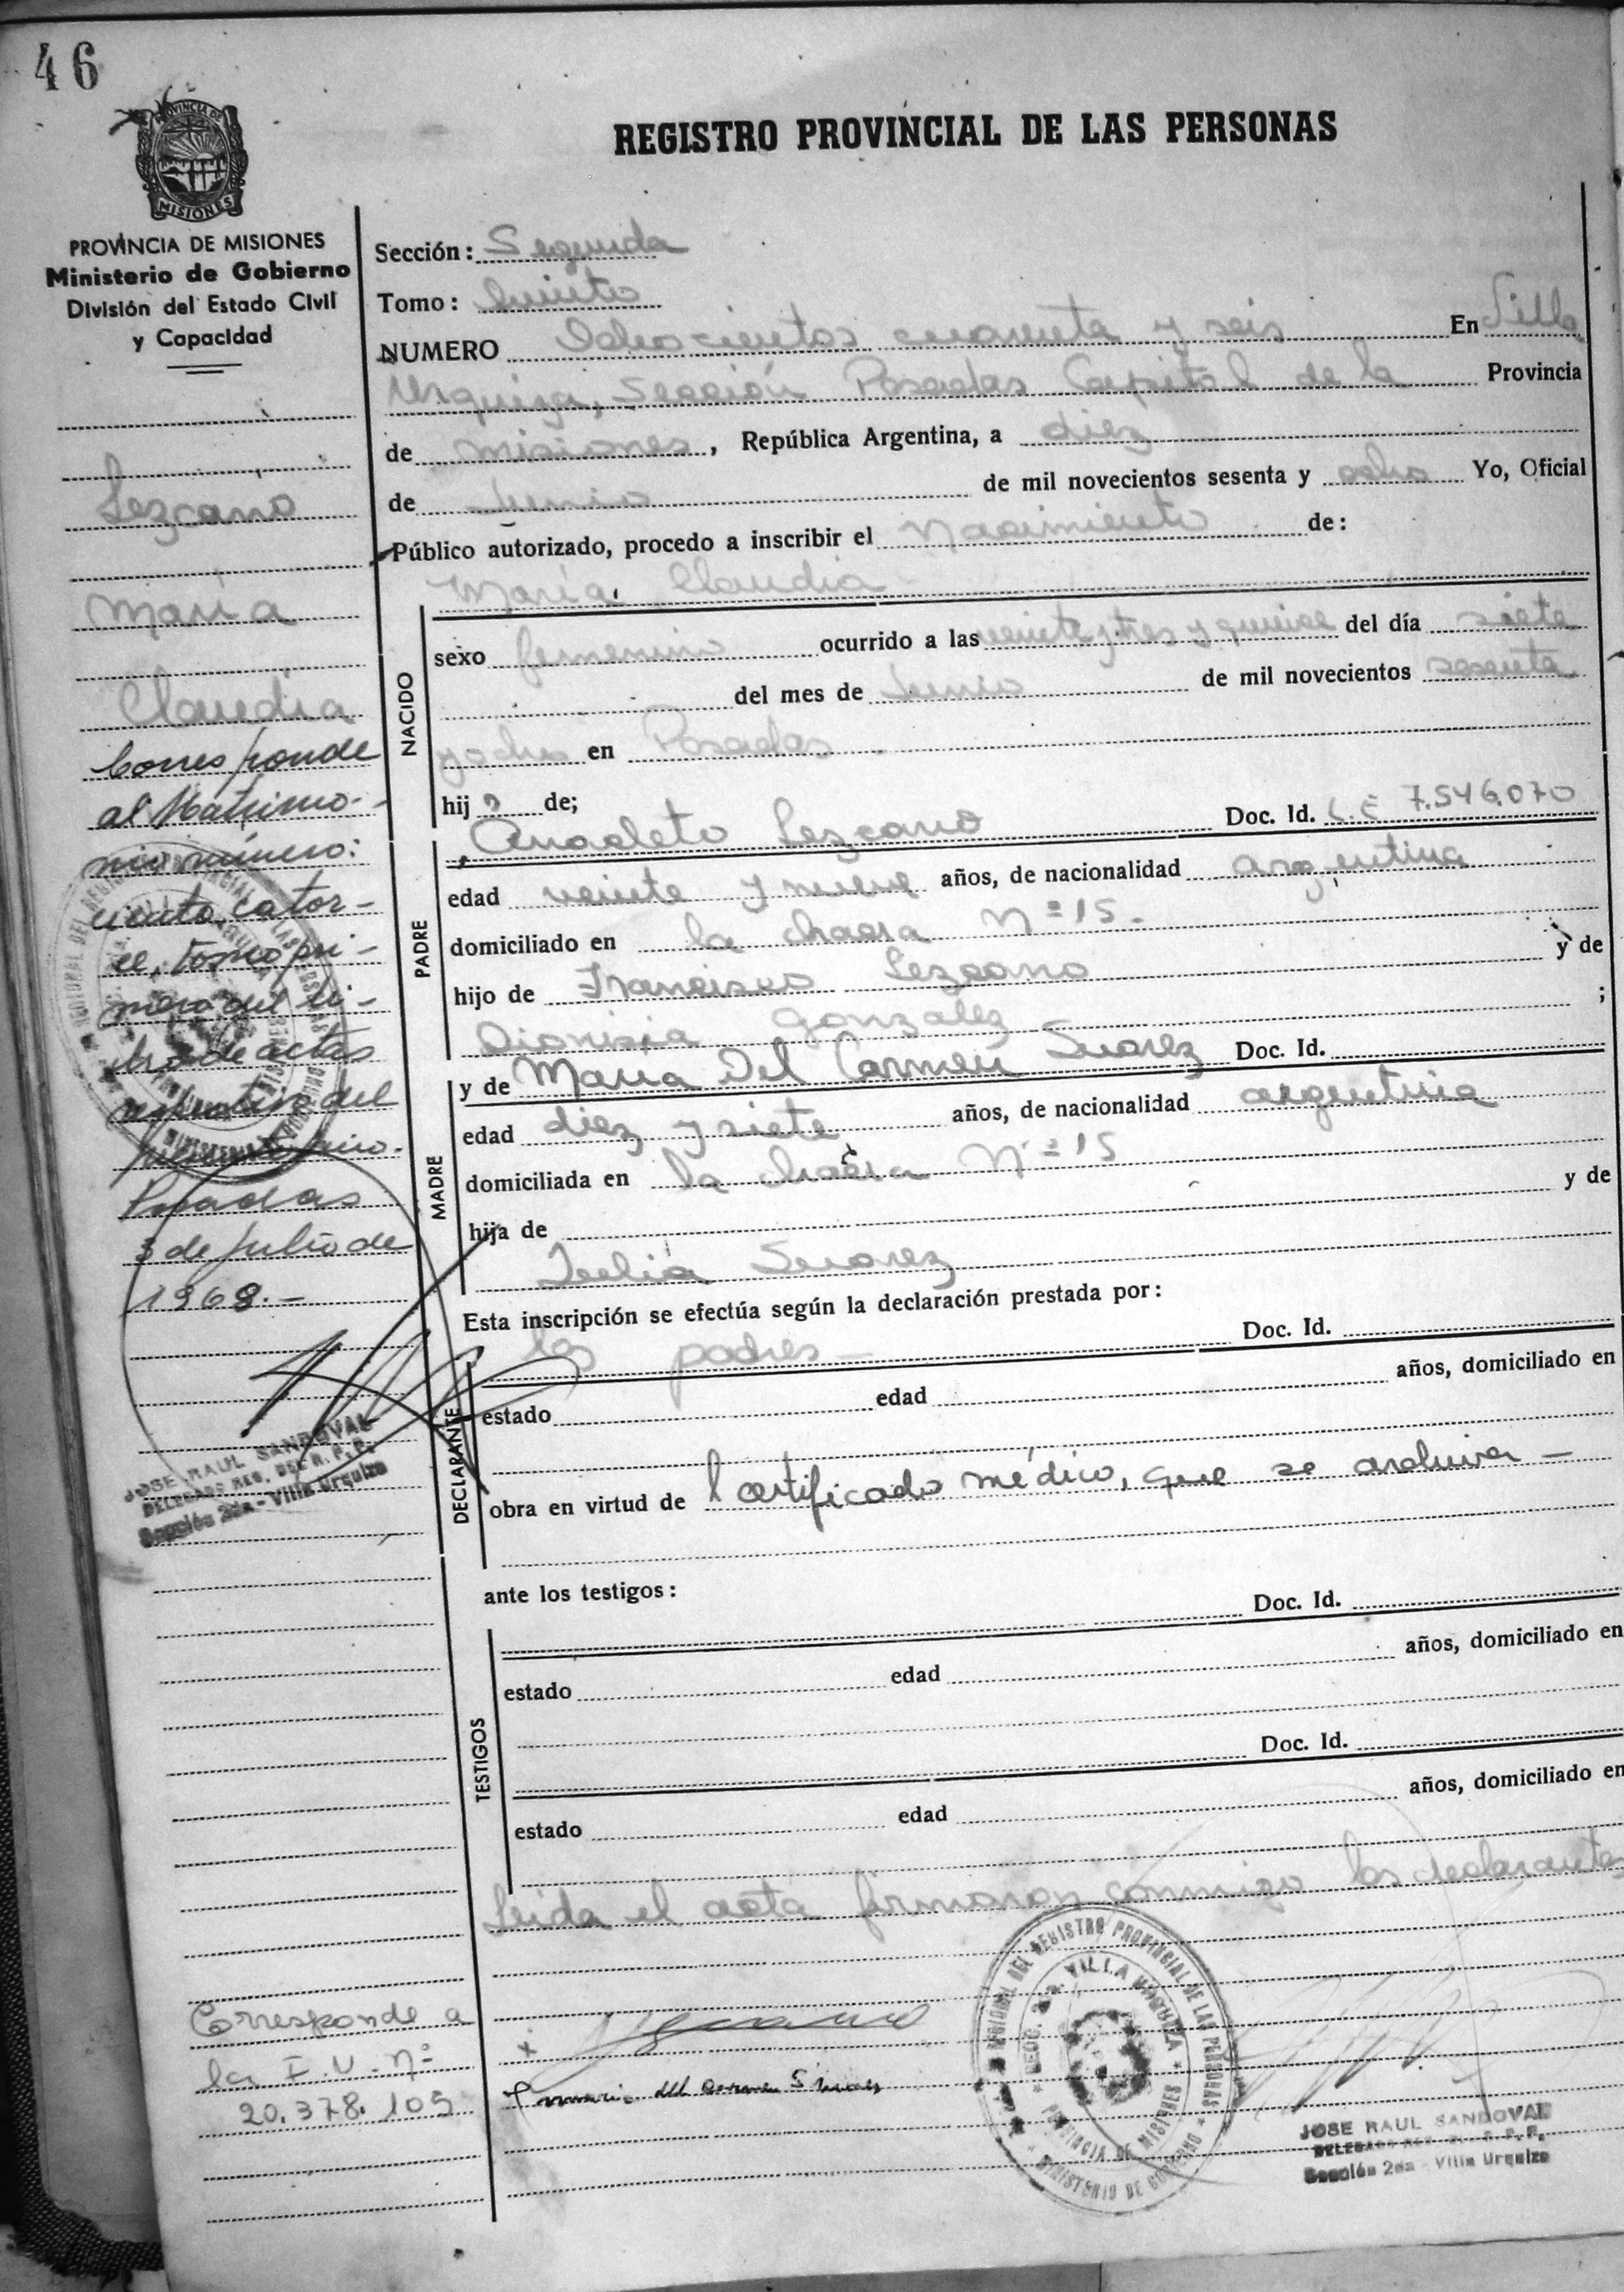 46
PROVINCIA DE
MISIONES
REGISTRO PROVINCIAL DE LAS PERSONAS
PROVINCIA DE MISIONES
Ministerio de Gobierno
División del Estado Civil
y Capacidad
Lezcano
Maria
Claudia
Corresponde
al Matrimo-
nio número:
ciento cator-
ce, tomo pri-
mero del li-
bro de actas
respectivo del
Posadas
3 de Julio de
1968.-
JOSE RAUL SANDOVAL
DELEGADO REG. DEL R. P. P.
Sección 2da - Villa Urquiza
Corresponde a
la I.N. nº
20.378.105
Sección: Segunda
Tomo: Quinto
NUMERO Ochocientos cuarenta y seis En Villa
Urquiza, Sección Posadas Capital de la Provincia
de Misiones, República Argentina, a diez
de Junio de mil novecientos sesenta y ocho Yo, Oficial
Público autorizado, procedo a inscribir el Nacimiento de:
María Claudia
NACIDO
sexo femenino ocurrido a las veinte y tres y quince del día siete
del mes de Junio de mil novecientos sesenta
y ocho en Posadas.
hij a de;
PADRE
Anacleto Lezcano Doc. Id. L.E 7.546.070
edad veinte y nueve años, de nacionalidad argentina
domiciliado en la chacra Nº 15.
hijo de Francisco Lezcano y de
Dionisia Gonzalez ;
MADRE
y de Maria Del Carmen Suarez Doc. Id.
edad diez y siete años, de nacionalidad argentina
domiciliada en la chacra Nº 15
hija de y de
Julia Suarez
Esta inscripción se efectúa según la declaración prestada por:
DECLARANTE
los padres - Doc. Id.
estado edad años, domiciliado en
obra en virtud de certificado médico, que se archiva -
ante los testigos:
TESTIGOS
Doc. Id.
estado edad años, domiciliado en
Doc. Id.
estado edad años, domiciliado en
Leida el acta firmaron conmigo los declarantes
REGIONAL DEL REGISTRO PROVINCIAL DE LAS PERSONAS
SECC. 2 a. VILLA URQUIZA
PROVINCIA DE MISIONES
MINISTERIO DE GOBIERNO
JOSE RAUL SANDOVAL
Sección 2da - Villa Urquiza